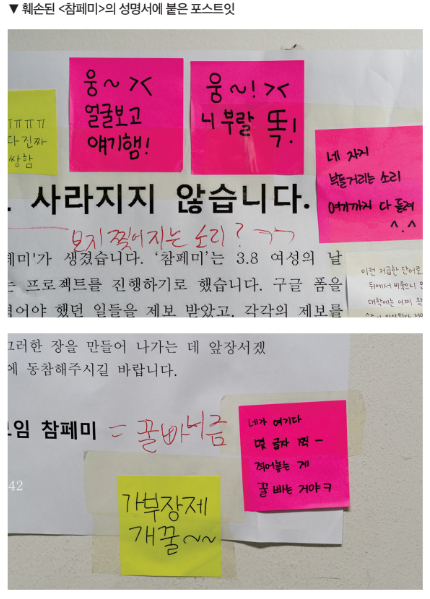 ▼ 훼손된 <참페미>의 성명서에 붙은 포스트잇
ㅠㅠㅠㅠ
다 진짜
쌍함
웅~ ><
얼굴보고
얘기햄!
웅~! ><
니 부랄 똑!
네 자지
부들거리는 소리
여기까지 다 들려
^.^
사라지지 않습니다.
보지 찢어지는 소리? ㄱㄱ
페미'가 생겼습니다. '참페미'는 3.8 여성의 날
는 프로젝트를 진행하기로 했습니다. 구글 폼을
적어야 했던 일들을 제보 받았고, 각각의 제보를
이런 저급한 단어로
뒤에서
그러한 장을 만들어 나가는 데 앞장서겠
에 동참해주시길 바랍니다.
모임 참페미 = 꿀빠니즘
네가 여기다
몇 글자 찍-
적어놓는 게
꿀 빠는 거야ㅋ
42
가부장제
개꿀~~